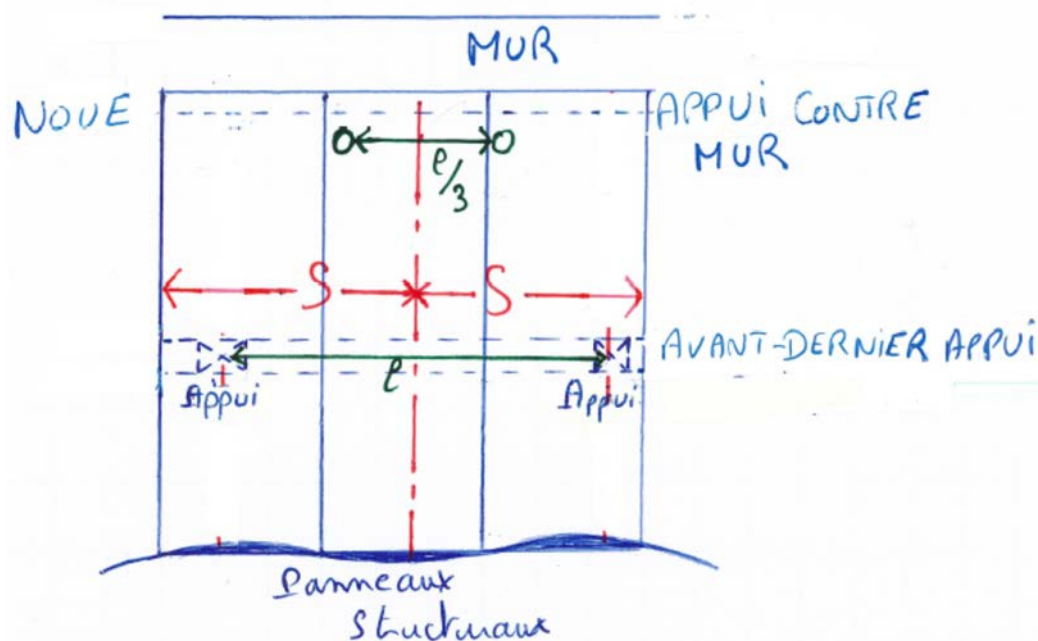 MUR
NOUE
APPUI CONTRE
MUR
O
O
l/3
S
S
AVANT-DERNIER APPUI
l
Appui
Appui
Panneaux
Structuraux